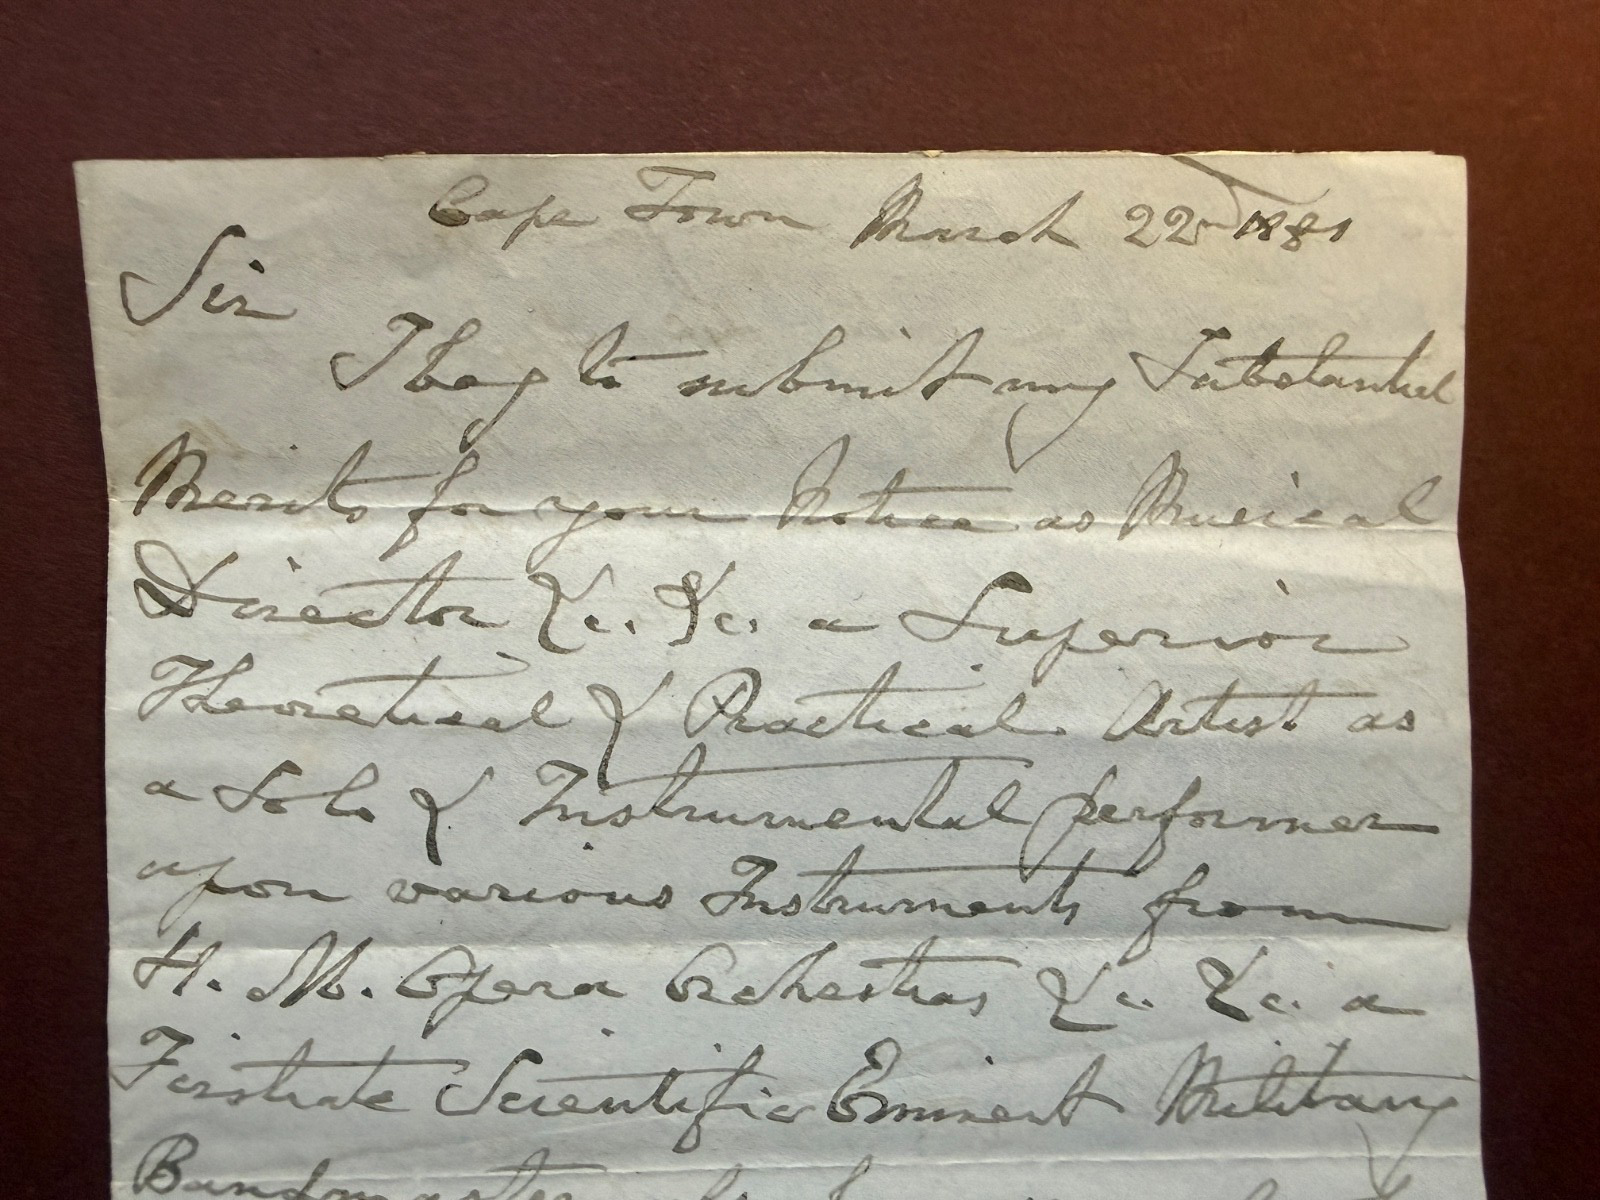 Cape Town March 22nd 1881
Sir
I beg to submit my Substantial
Merits for your Notice as Musical
Director &c. &c. a Superior
Theoretical & Practical Artist as
a Solo & Instrumental performer
upon various Instruments from
H. M. Opera Orchestras &c. &c. a
Firstrate Scientific Eminent Military
Bandmaster